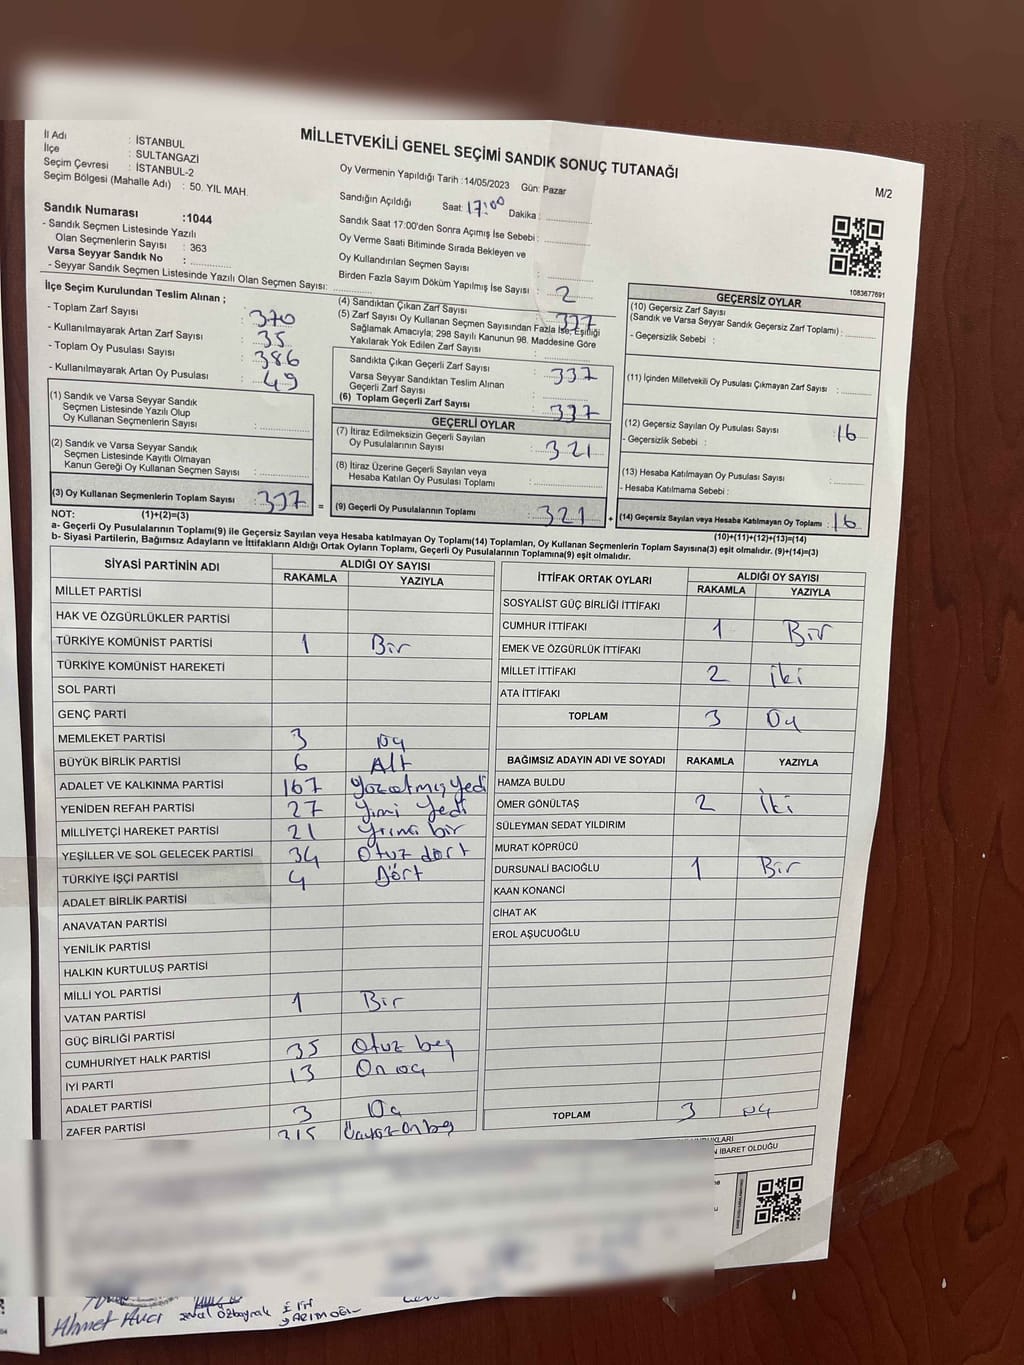 MİLLETVEKİLİ GENEL SEÇİMİ SANDIK SONUÇ TUTANAĞI
M/2
İl Adı : İSTANBUL
İlçe : SULTANGAZİ
Seçim Çevresi : İSTANBUL-2
Seçim Bölgesi (Mahalle Adı) : 50. YIL MAH.
Sandık Numarası :1044
- Sandık Seçmen Listesinde Yazılı
Olan Seçmenlerin Sayısı : 363
Varsa Seyyar Sandık No :
- Seyyar Sandık Seçmen Listesinde Yazılı Olan Seçmen Sayısı:
Oy Vermenin Yapıldığı Tarih :14/05/2023 Gün: Pazar
Sandığın Açıldığı Saat: 17:00 Dakika :
Sandık Saat 17:00'den Sonra Açımış İse Sebebi :
Oy Verme Saati Bitiminde Sırada Bekleyen ve
Oy Kullandırılan Seçmen Sayısı :
Birden Fazla Sayım Döküm Yapılmış İse Sayısı : 2
1083677691
İlçe Seçim Kurulundan Teslim Alınan ;
- Toplam Zarf Sayısı : 370
- Kullanılmayarak Artan Zarf Sayısı : 35
- Toplam Oy Pusulası Sayısı : 386
- Kullanılmayarak Artan Oy Pusulası : 49
(1) Sandık ve Varsa Seyyar Sandık
Seçmen Listesinde Yazılı Olup
Oy Kullanan Seçmenlerin Sayısı :
(2) Sandık ve Varsa Seyyar Sandık
Seçmen Listesinde Kayıtlı Olmayan
Kanun Gereği Oy Kullanan Seçmen Sayısı :
(3) Oy Kullanan Seçmenlerin Toplam Sayısı : 337
(4) Sandıktan Çıkan Zarf Sayısı : 337
(5) Zarf Sayısı Oy Kullanan Seçmen Sayısından Fazla İse, Eşitliği
Sağlamak Amacıyla; 298 Sayılı Kanunun 98. Maddesine Göre
Yakılarak Yok Edilen Zarf Sayısı :
Sandıkta Çıkan Geçerli Zarf Sayısı : 337
Varsa Seyyar Sandıktan Teslim Alınan
Geçerli Zarf Sayısı :
(6) Toplam Geçerli Zarf Sayısı : 337
GEÇERLİ OYLAR
(7) İtiraz Edilmeksizin Geçerli Sayılan
Oy Pusulalarının Sayısı : 321
(8) İtiraz Üzerine Geçerli Sayılan veya
Hesaba Katılan Oy Pusulası Toplamı :
= (9) Geçerli Oy Pusulalarının Toplamı : 321
GEÇERSİZ OYLAR
(10) Geçersiz Zarf Sayısı
(Sandık ve Varsa Seyyar Sandık Geçersiz Zarf Toplamı) :
- Geçersizlik Sebebi :
(11) İçinden Milletvekili Oy Pusulası Çıkmayan Zarf Sayısı :
(12) Geçersiz Sayılan Oy Pusulası Sayısı : 16
- Geçersizlik Sebebi :
(13) Hesaba Katılmayan Oy Pusulası Sayısı :
- Hesaba Katılmama Sebebi :
+ (14) Geçersiz Sayılan veya Hesaba Katılmayan Oy Toplamı : 16
NOT: (1)+(2)=(3)
(10)+(11)+(12)+(13)=(14)
a- Geçerli Oy Pusulalarının Toplamı(9) ile Geçersiz Sayılan veya Hesaba katılmayan Oy Toplamı(14) Toplamları, Oy Kullanan Seçmenlerin Toplam Sayısına(3) eşit olmalıdır. (9)+(14)=(3)
b- Siyasi Partilerin, Bağımsız Adayların ve İttifakların Aldığı Ortak Oyların Toplamı, Geçerli Oy Pusulalarının Toplamına(9) eşit olmalıdır.
SİYASİ PARTİNİN ADI ALDIĞI OY SAYISI
RAKAMLA YAZIYLA
MİLLET PARTİSİ
HAK VE ÖZGÜRLÜKLER PARTİSİ
TÜRKİYE KOMÜNİST PARTİSİ 1 Bir
TÜRKİYE KOMÜNİST HAREKETİ
SOL PARTİ
GENÇ PARTİ
MEMLEKET PARTİSİ 3 Üç
BÜYÜK BİRLİK PARTİSİ 6 Altı
ADALET VE KALKINMA PARTİSİ 167 Yüzatmışyedi
YENİDEN REFAH PARTİSİ 27 Yirmi Yedi
MİLLİYETÇİ HAREKET PARTİSİ 21 Yirmi bir
YEŞİLLER VE SOL GELECEK PARTİSİ 34 Otuz dört
TÜRKİYE İŞÇİ PARTİSİ 4 Dört
ADALET BİRLİK PARTİSİ
ANAVATAN PARTİSİ
YENİLİK PARTİSİ
HALKIN KURTULUŞ PARTİSİ
MİLLİ YOL PARTİSİ 1 Bir
VATAN PARTİSİ
GÜÇ BİRLİĞİ PARTİSİ
CUMHURİYET HALK PARTİSİ 35 Otuz beş
İYİ PARTİ 13 On üç
ADALET PARTİSİ
ZAFER PARTİSİ 3 Üç
315 Üçyüz On beş
İTTİFAK ORTAK OYLARI ALDIĞI OY SAYISI
RAKAMLA YAZIYLA
SOSYALİST GÜÇ BİRLİĞİ İTTİFAKI
CUMHUR İTTİFAKI 1 Bir
EMEK VE ÖZGÜRLÜK İTTİFAKI
MİLLET İTTİFAKI 2 İki
ATA İTTİFAKI
TOPLAM 3 Üç
BAĞIMSIZ ADAYIN ADI VE SOYADI RAKAMLA YAZIYLA
HAMZA BULDU
ÖMER GÖNÜLTAŞ 2 İki
SÜLEYMAN SEDAT YILDIRIM
MURAT KÖPRÜCÜ
DURSUNALİ BACIOĞLU 1 Bir
KAAN KONANCİ
CİHAT AK
EROL AŞUCUOĞLU
TOPLAM 3 Üç
İBARET OLDUĞU
Ahmet Avcı
Özbayrak